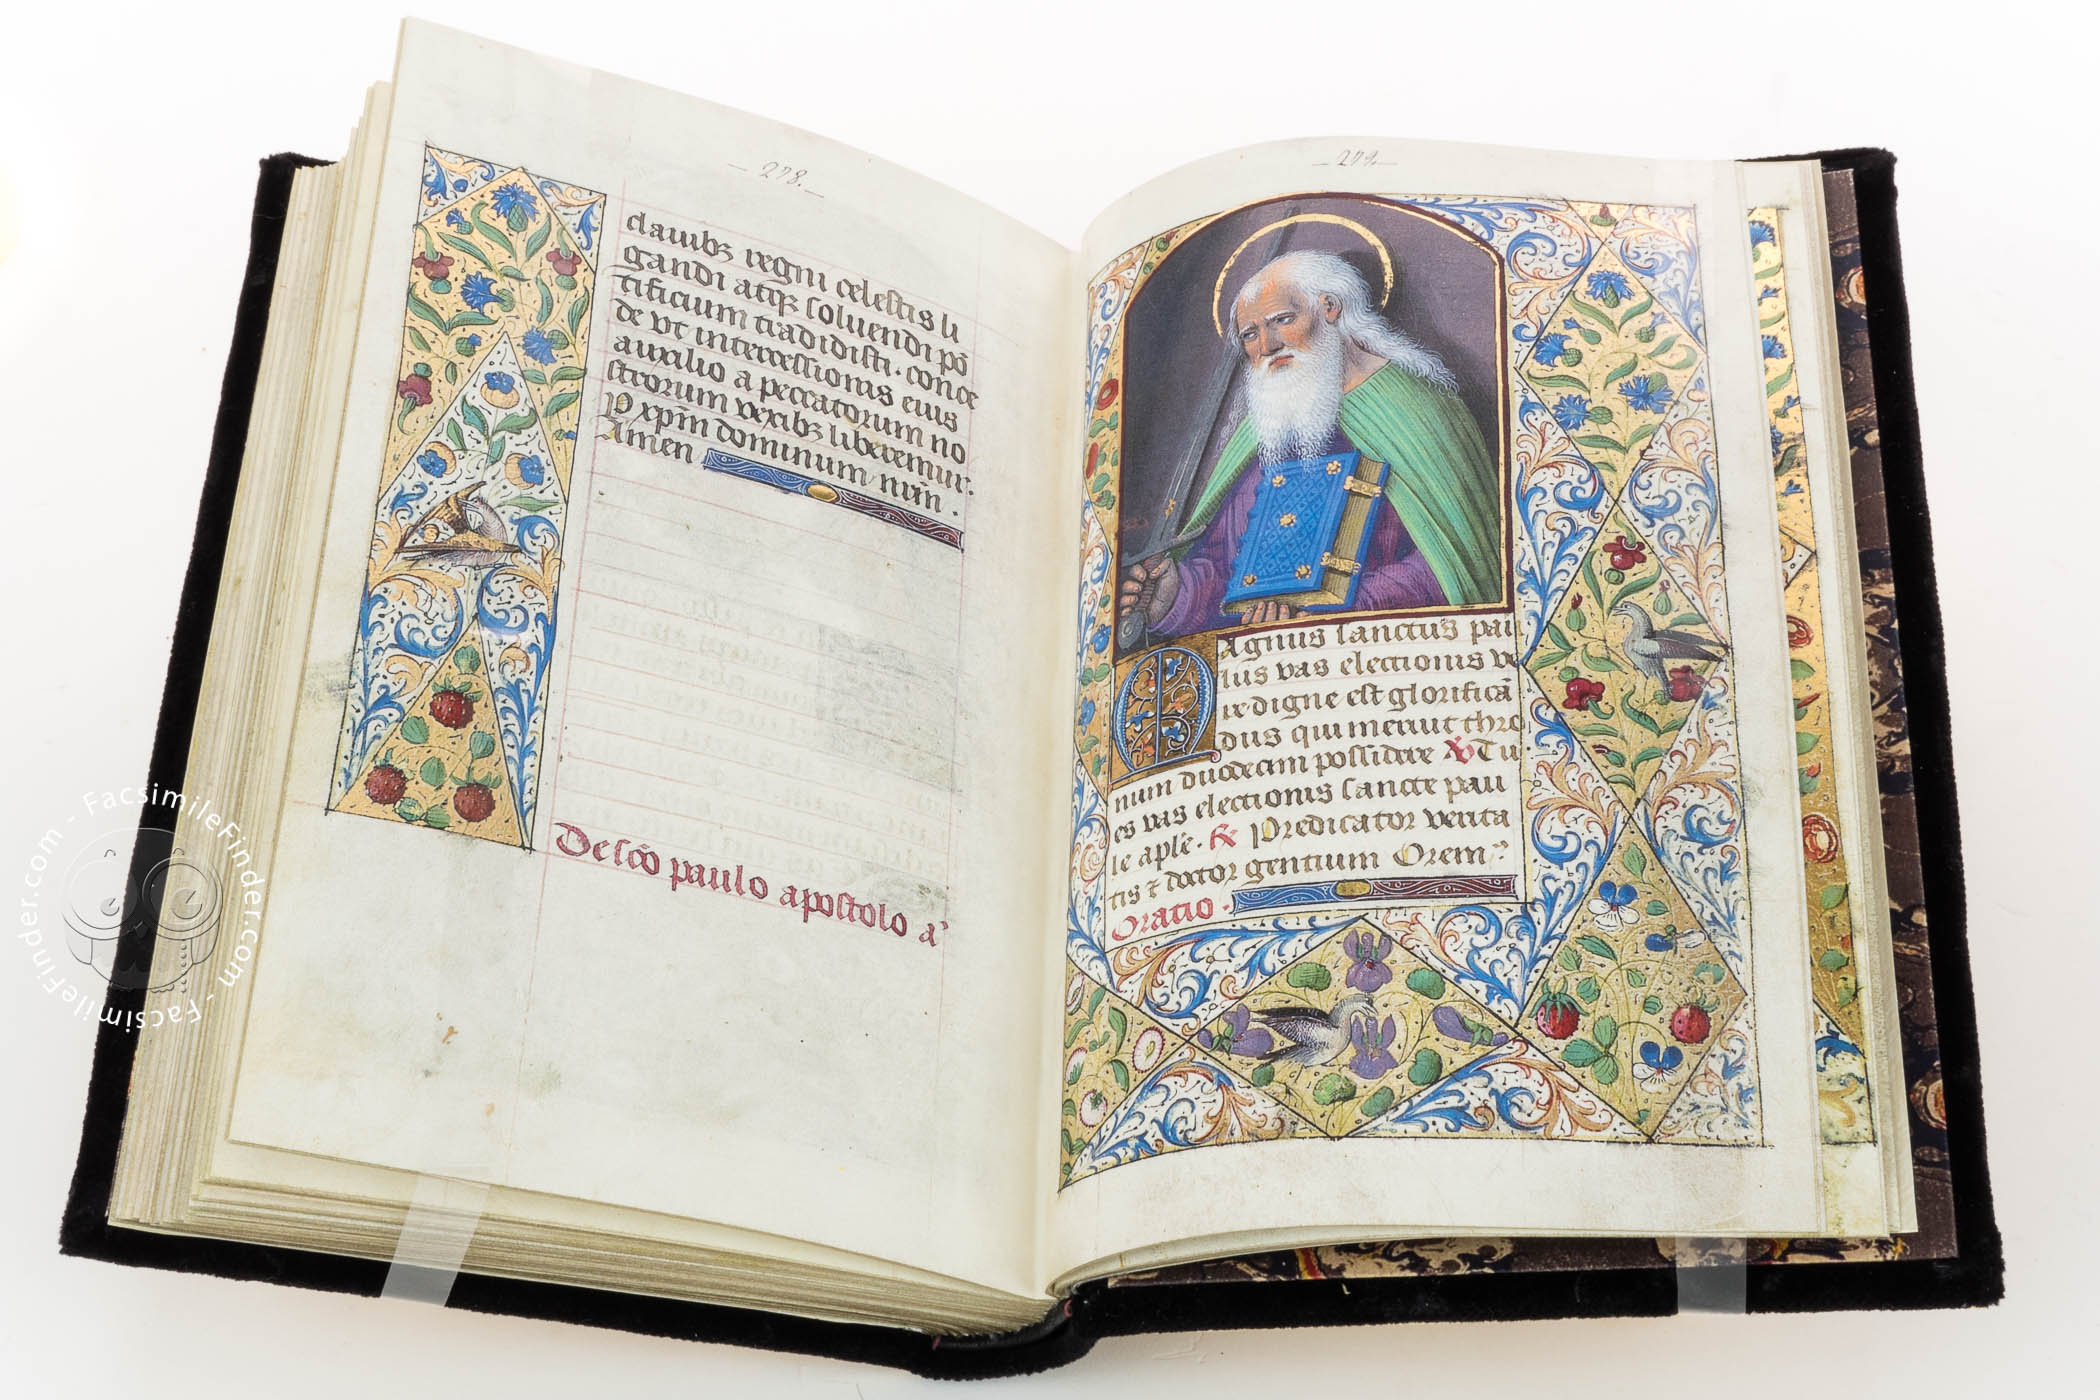 - 278. -
clauibꝫ regni celestis li
gandi atqꝫ soluendi pō
tificium tradidisti. conce
de vt intercessionis eius
auxilio a peccatorum no
strorum nexibꝫ liberemur.
P xp̄m dominum nr̄m.
Amen
De sc̄o paulo apostolo aͬ
- 279. -
MAgnus sanctus pau
lus vas electionis ve
re digne est glorificā
dus qui meruit thro
num duodecim possidere ℣ Tu
es vas electionis sancte pau
le aplē. ℟ Predicator verita
tis ⁊ doctor gentium Orem⁹
Oratio.
FacsimileFinder.com - FacsimileFinder.com - FacsimileFinder.com